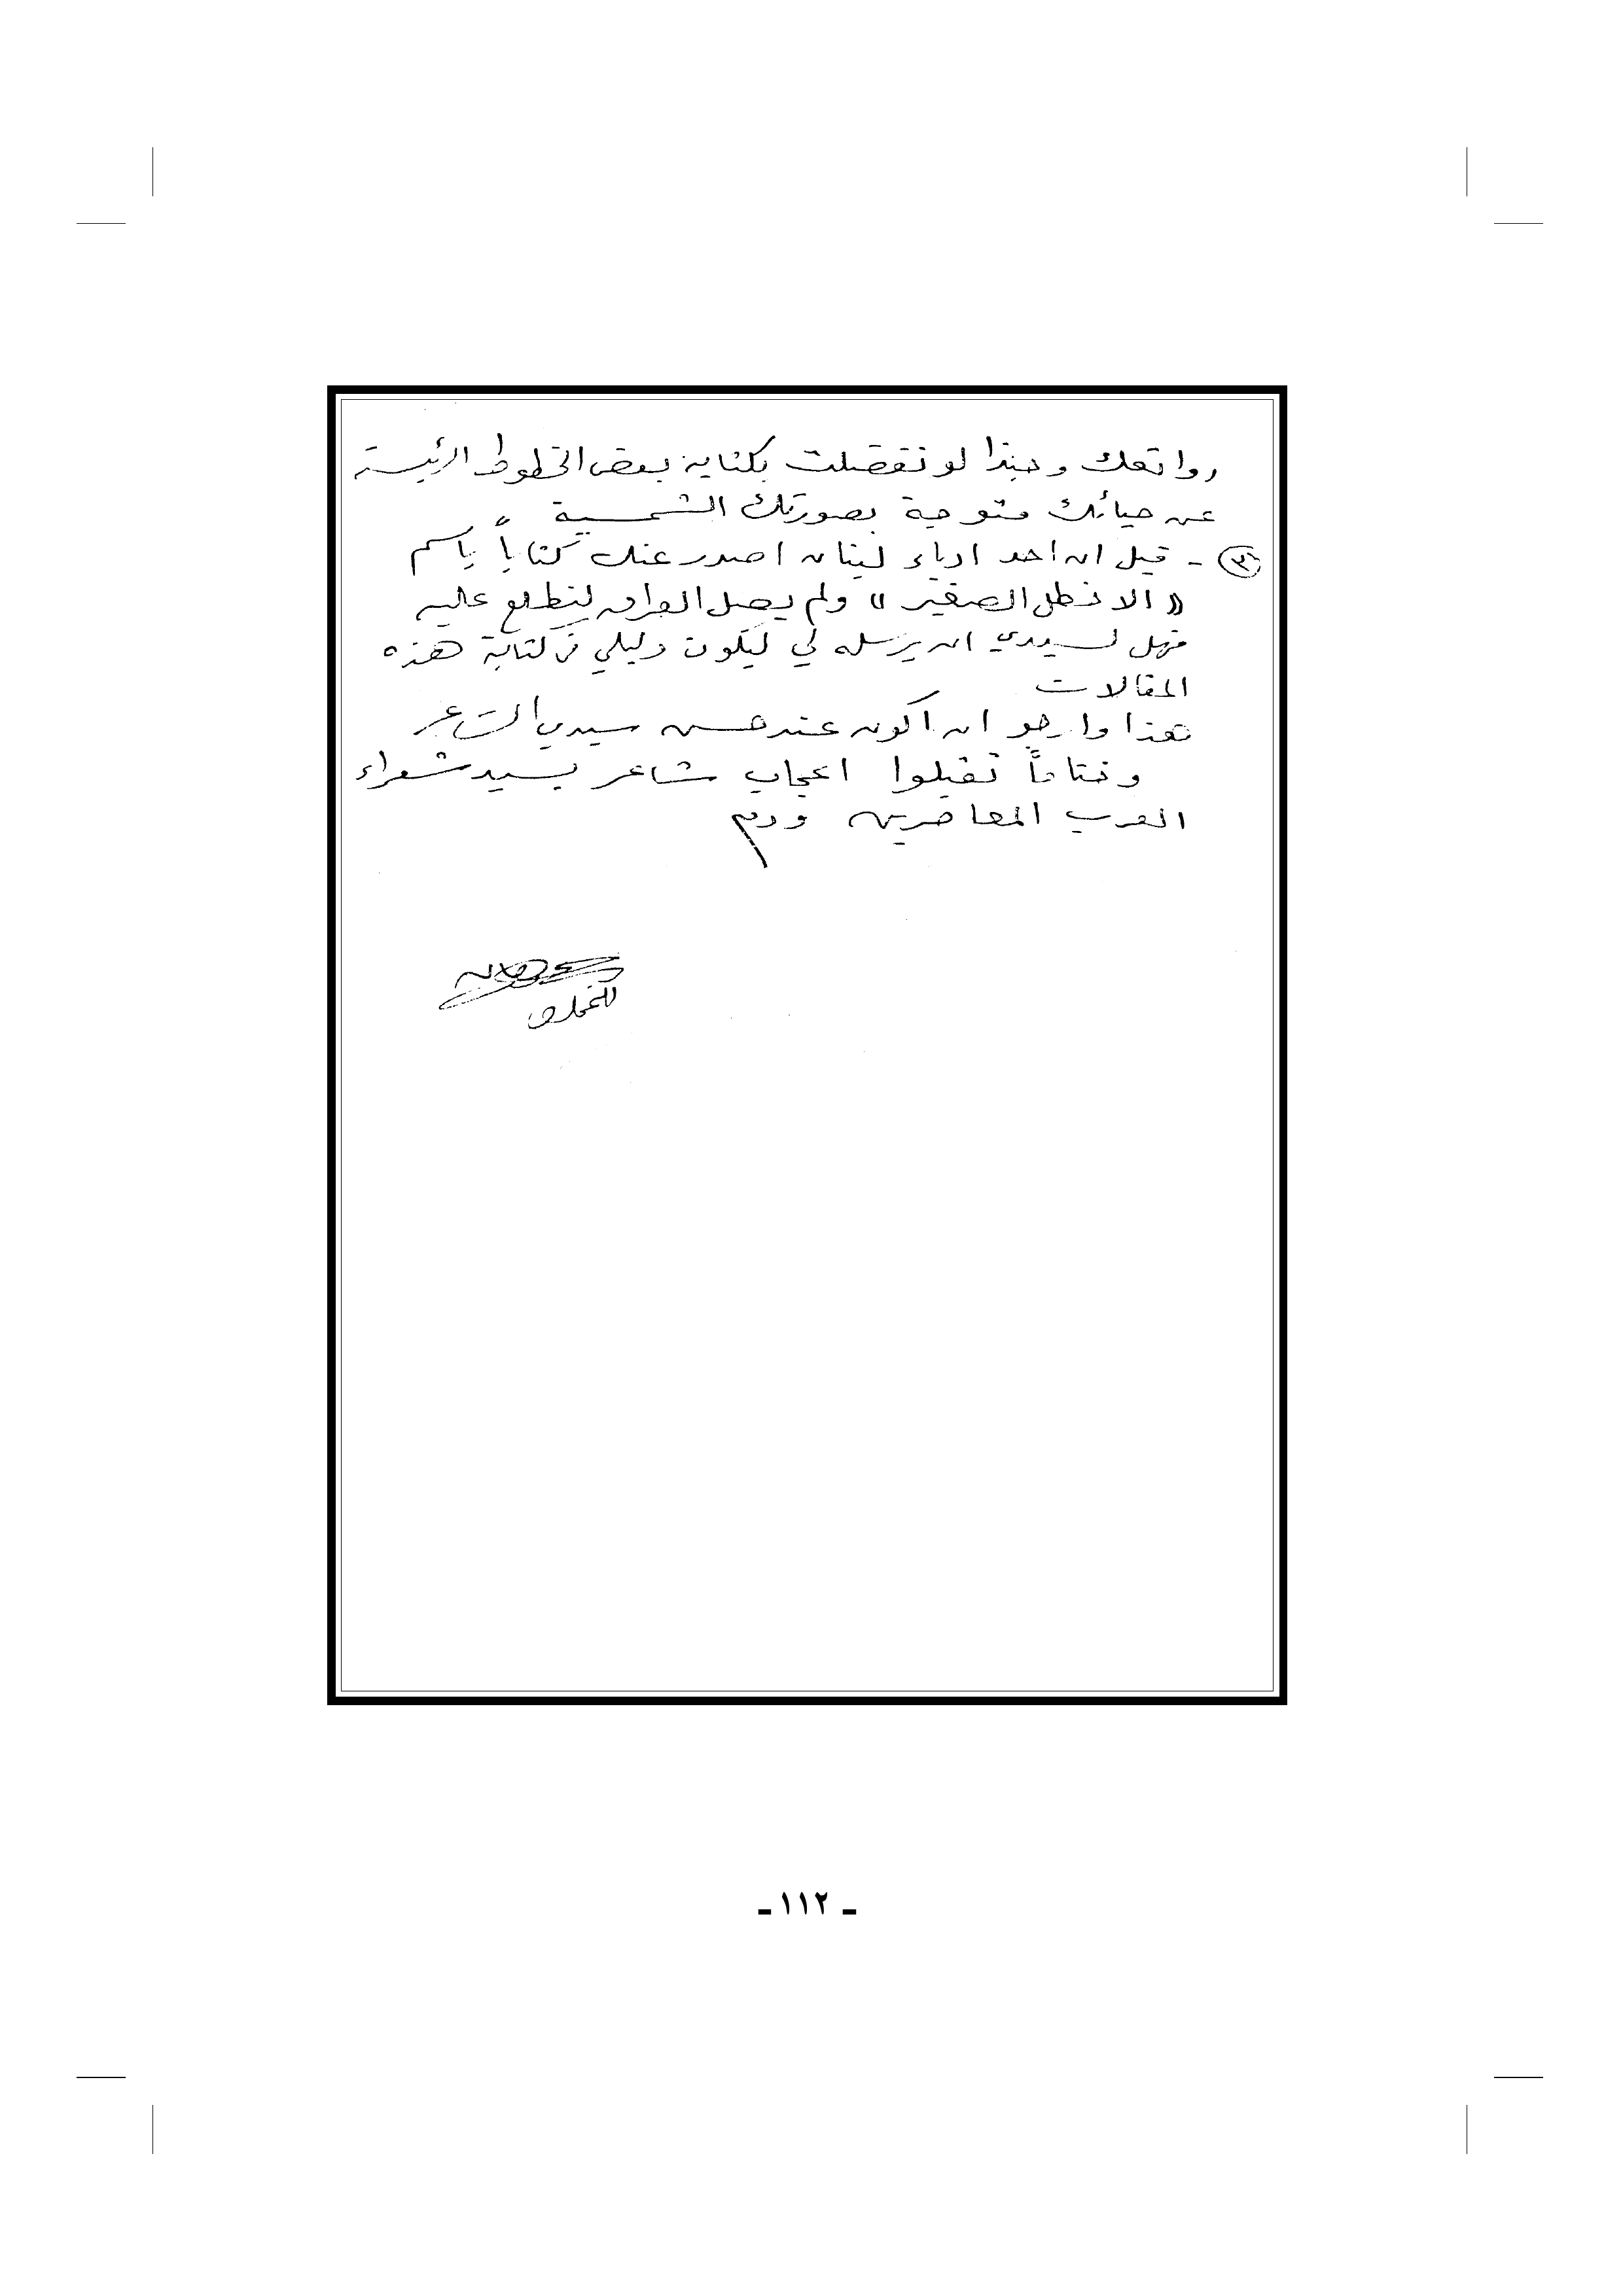 روائعك وحبذا لو تفضلت بكتابة بعض الخطوط الرئيسة
عن حياتك متوجة بصورتك الشمسية
٣ - قيل ان احد ادباء لبنان اصدر عنك كتاباً باسم
« الاخطل الصغير » ولم يصل العراق لنطلع عليه
فهل لسيدي ان يرسله لي ليكون دليلي في كتابة هذه
المقالات
هذا وارجو ان اكون عند حسن سيدي الشاعر
وختاماً تقبلوا اعجاب شاعر بسيد شعراء
العرب المعاصرين ودم
ـ ١١٢ ـ